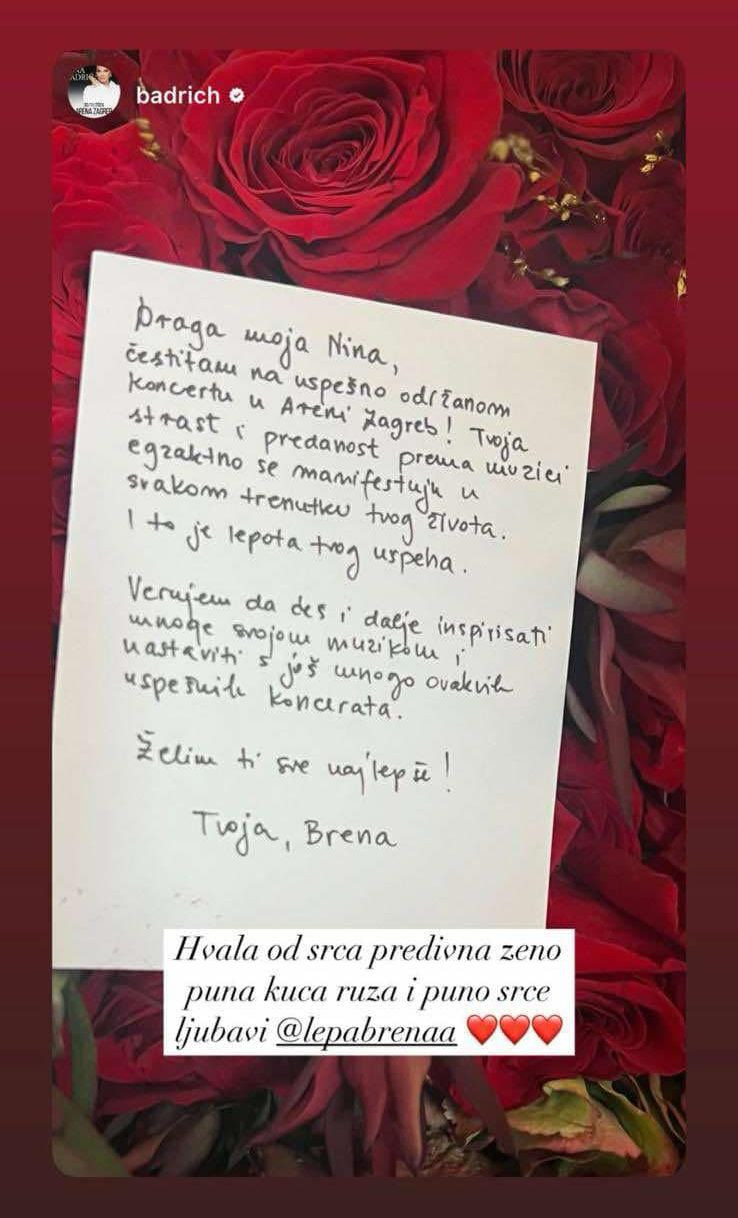 badrich
Draga moja Nina,
čestitam na uspešno održanom
koncertu u Areni Zagreb! Tvoja
strast i predanost prema muzici
egzaktno se manifestuju u
svakom trenutku tvog života.
I to je lepota tvog uspeha.
Verujem da ćeš i dalje inspirisati
mnoge svojom muzikom i
nastaviti s još mnogo ovakvih
uspešnih koncerata.
Želim ti sve najlepše!
Tvoja, Brena
Hvala od srca predivna zeno
puna kuca ruza i puno srce
ljubavi @lepabrenaa ❤️❤️❤️